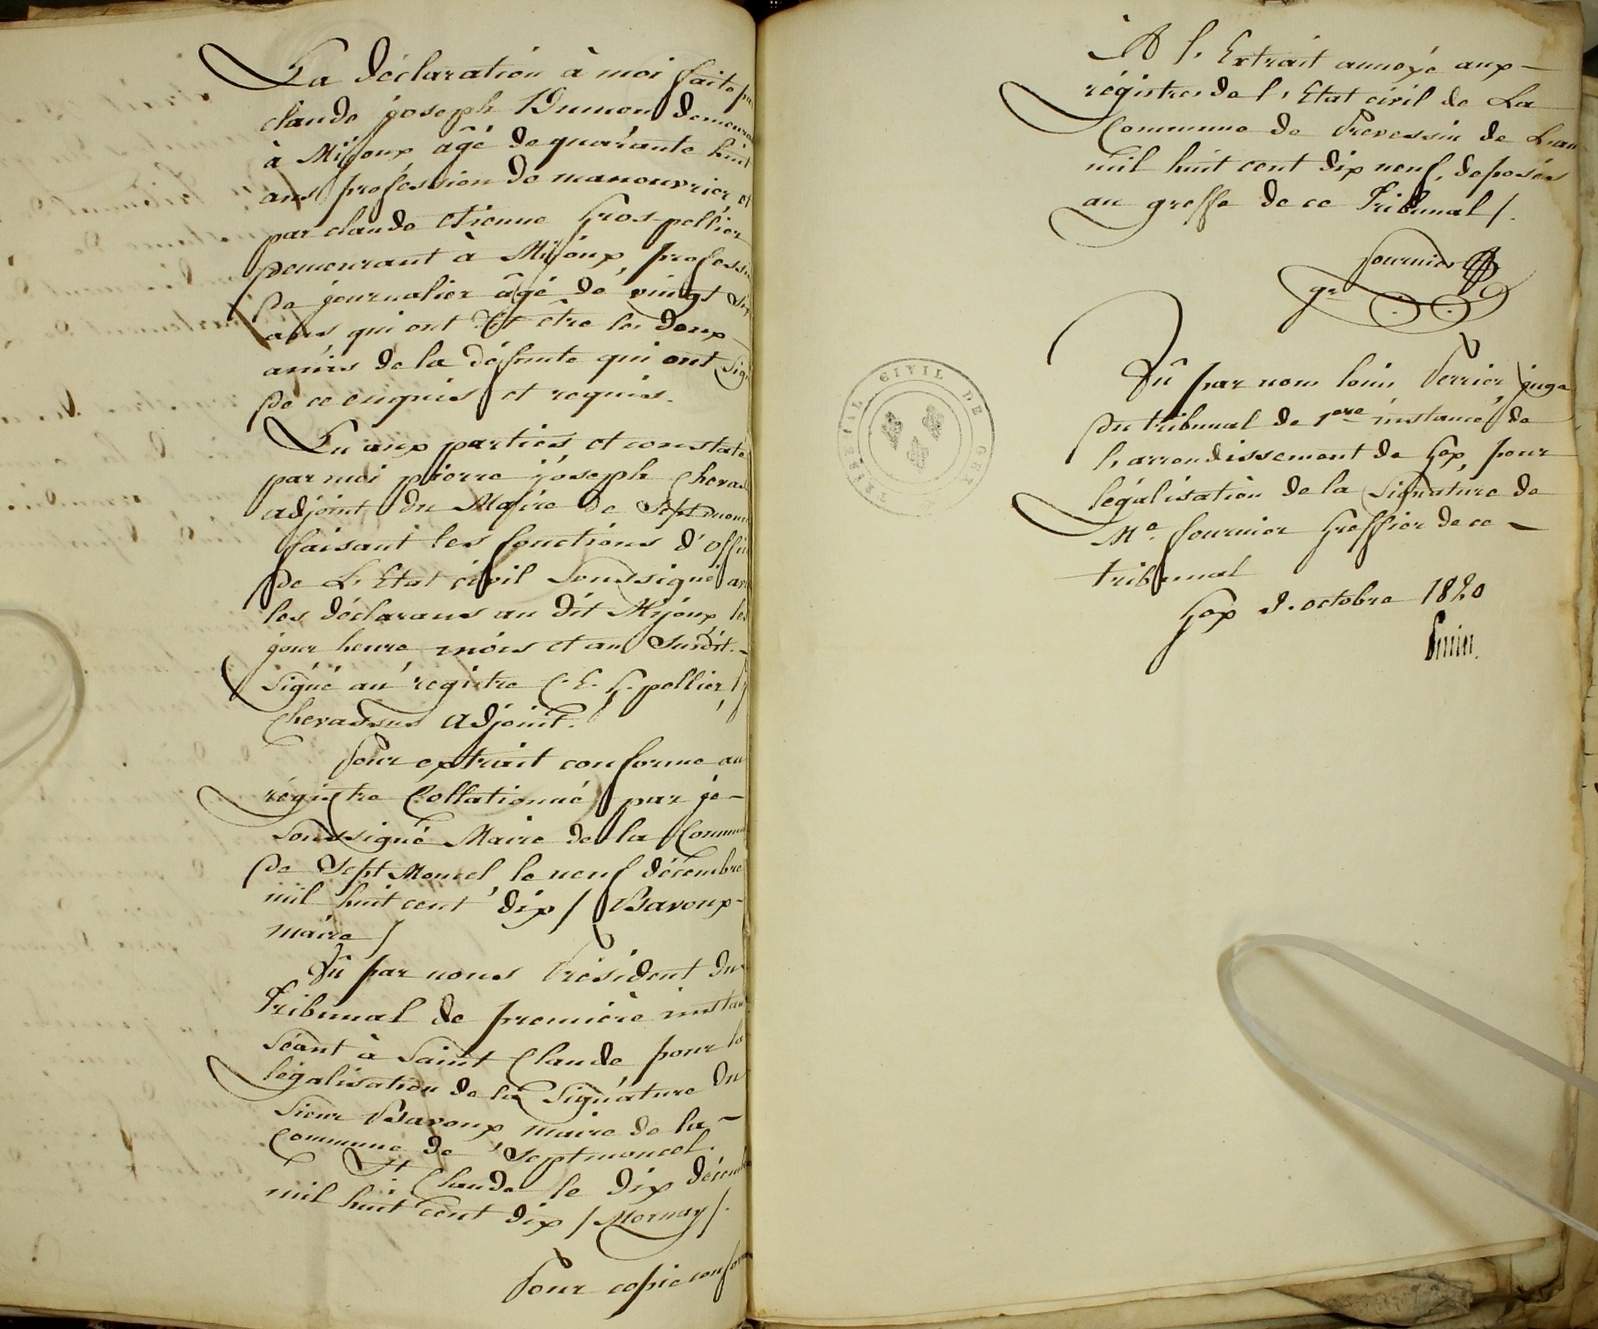 La déclaration à moi faite par
claude joseph Dumon demeura
à Mijoux âgé de quarante huit
ans profession de manouvrier et
par claude etienne Gros pellier
demeurant à Mijoux professi
de journalier âgé de vingt
ans qui ont dit être les deux
amis de la défunte qui ont sig
de ce enquis et requis.
Lu aux parties et constaté
par moi pierre joseph Chevas
adjoint du Maire de Septmon
faisant les fonctions d'offi
de L'Etat civil soussigné av
les déclarans au dit Mijoux les
jour heure mois et an susdit.
signé au registre C. E. G. pellier,
Chevassus adjoint.
Pour extrait conforme au
régistre Collationné par je
soussigné Maire de la Commu
de Sept Moncel le neuf décembre
mil huit cent dix / Bavoux
maire /
Vû par nous Président du
Tribunal de première instan
séant à Saint Claude pour la
légalisation de la signature du
sieur Bavoux maire de la
Commune de Septmoncel.
St Claude le dix décem
mil huit cent dix / Mornay /.
Pour copie confor
à l'Extrait annexé aux
régistres de l'Etat civil de La
Commune de Prevessin de L'an
mil huit cent dix neuf, déposés
au greffe de ce Tribunal /.
fournier
gr
Vû par nous louis Perrier juge
du tribunal de 1ere instance de
l'arrondissement de Gex, pour
légalisation de la signature de
Me. fournier Greffier de ce
tribunal
Gex octobre 1820
TRIBUNAL CIVIL DE GEX